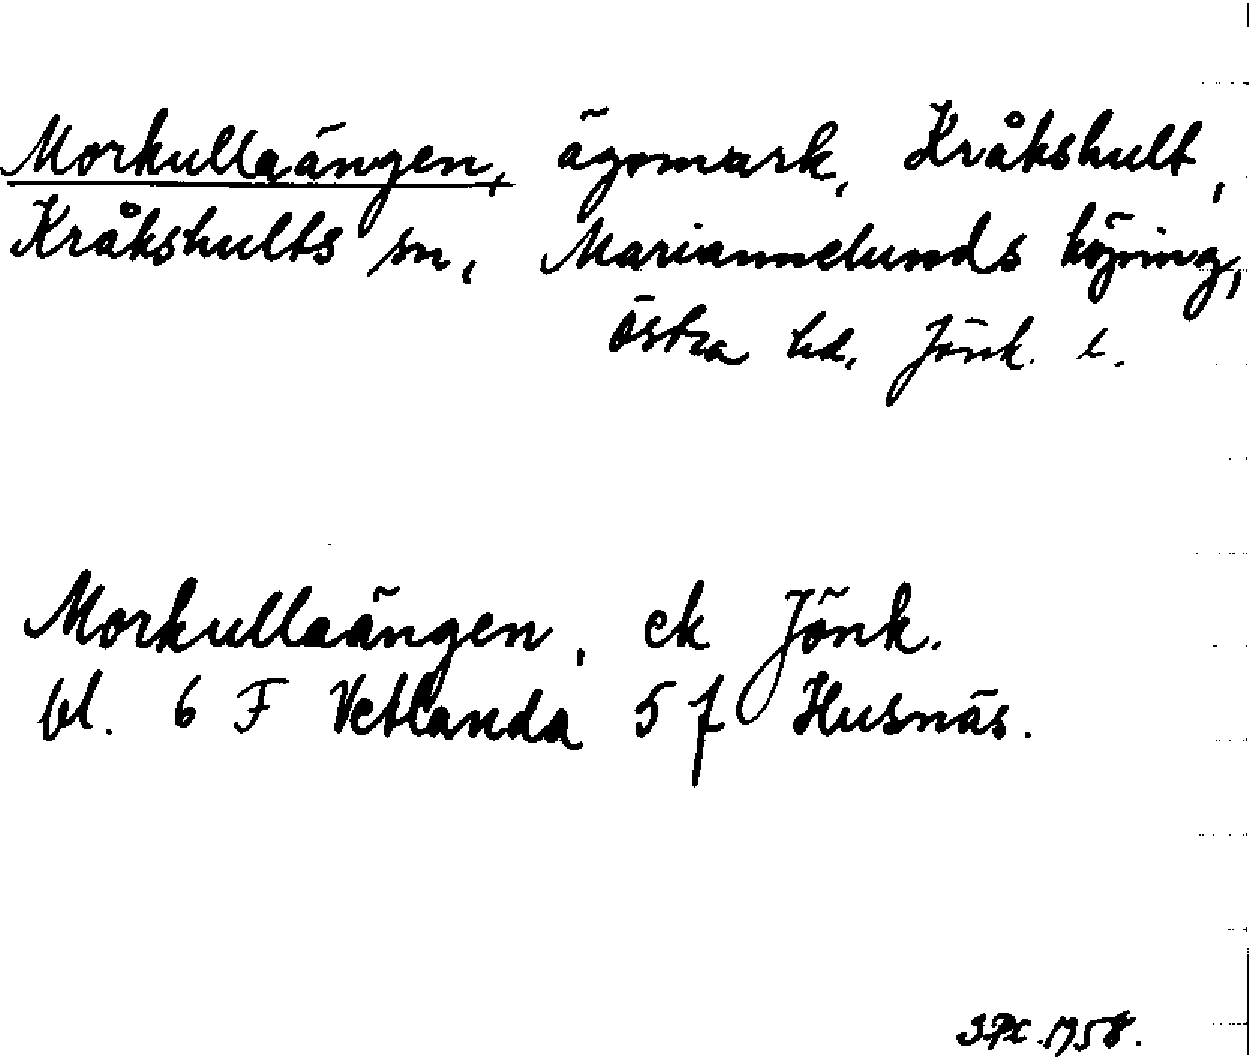 Morkullaängen, ägomark, Kråkshult,
Kråkshults sn, Mariannelunds köping,
Östra hd. Jönk. l.
Morkullaängen, ek Jönk.
bl. 6 F Vetlanda 5 f Husnäs.
1958.